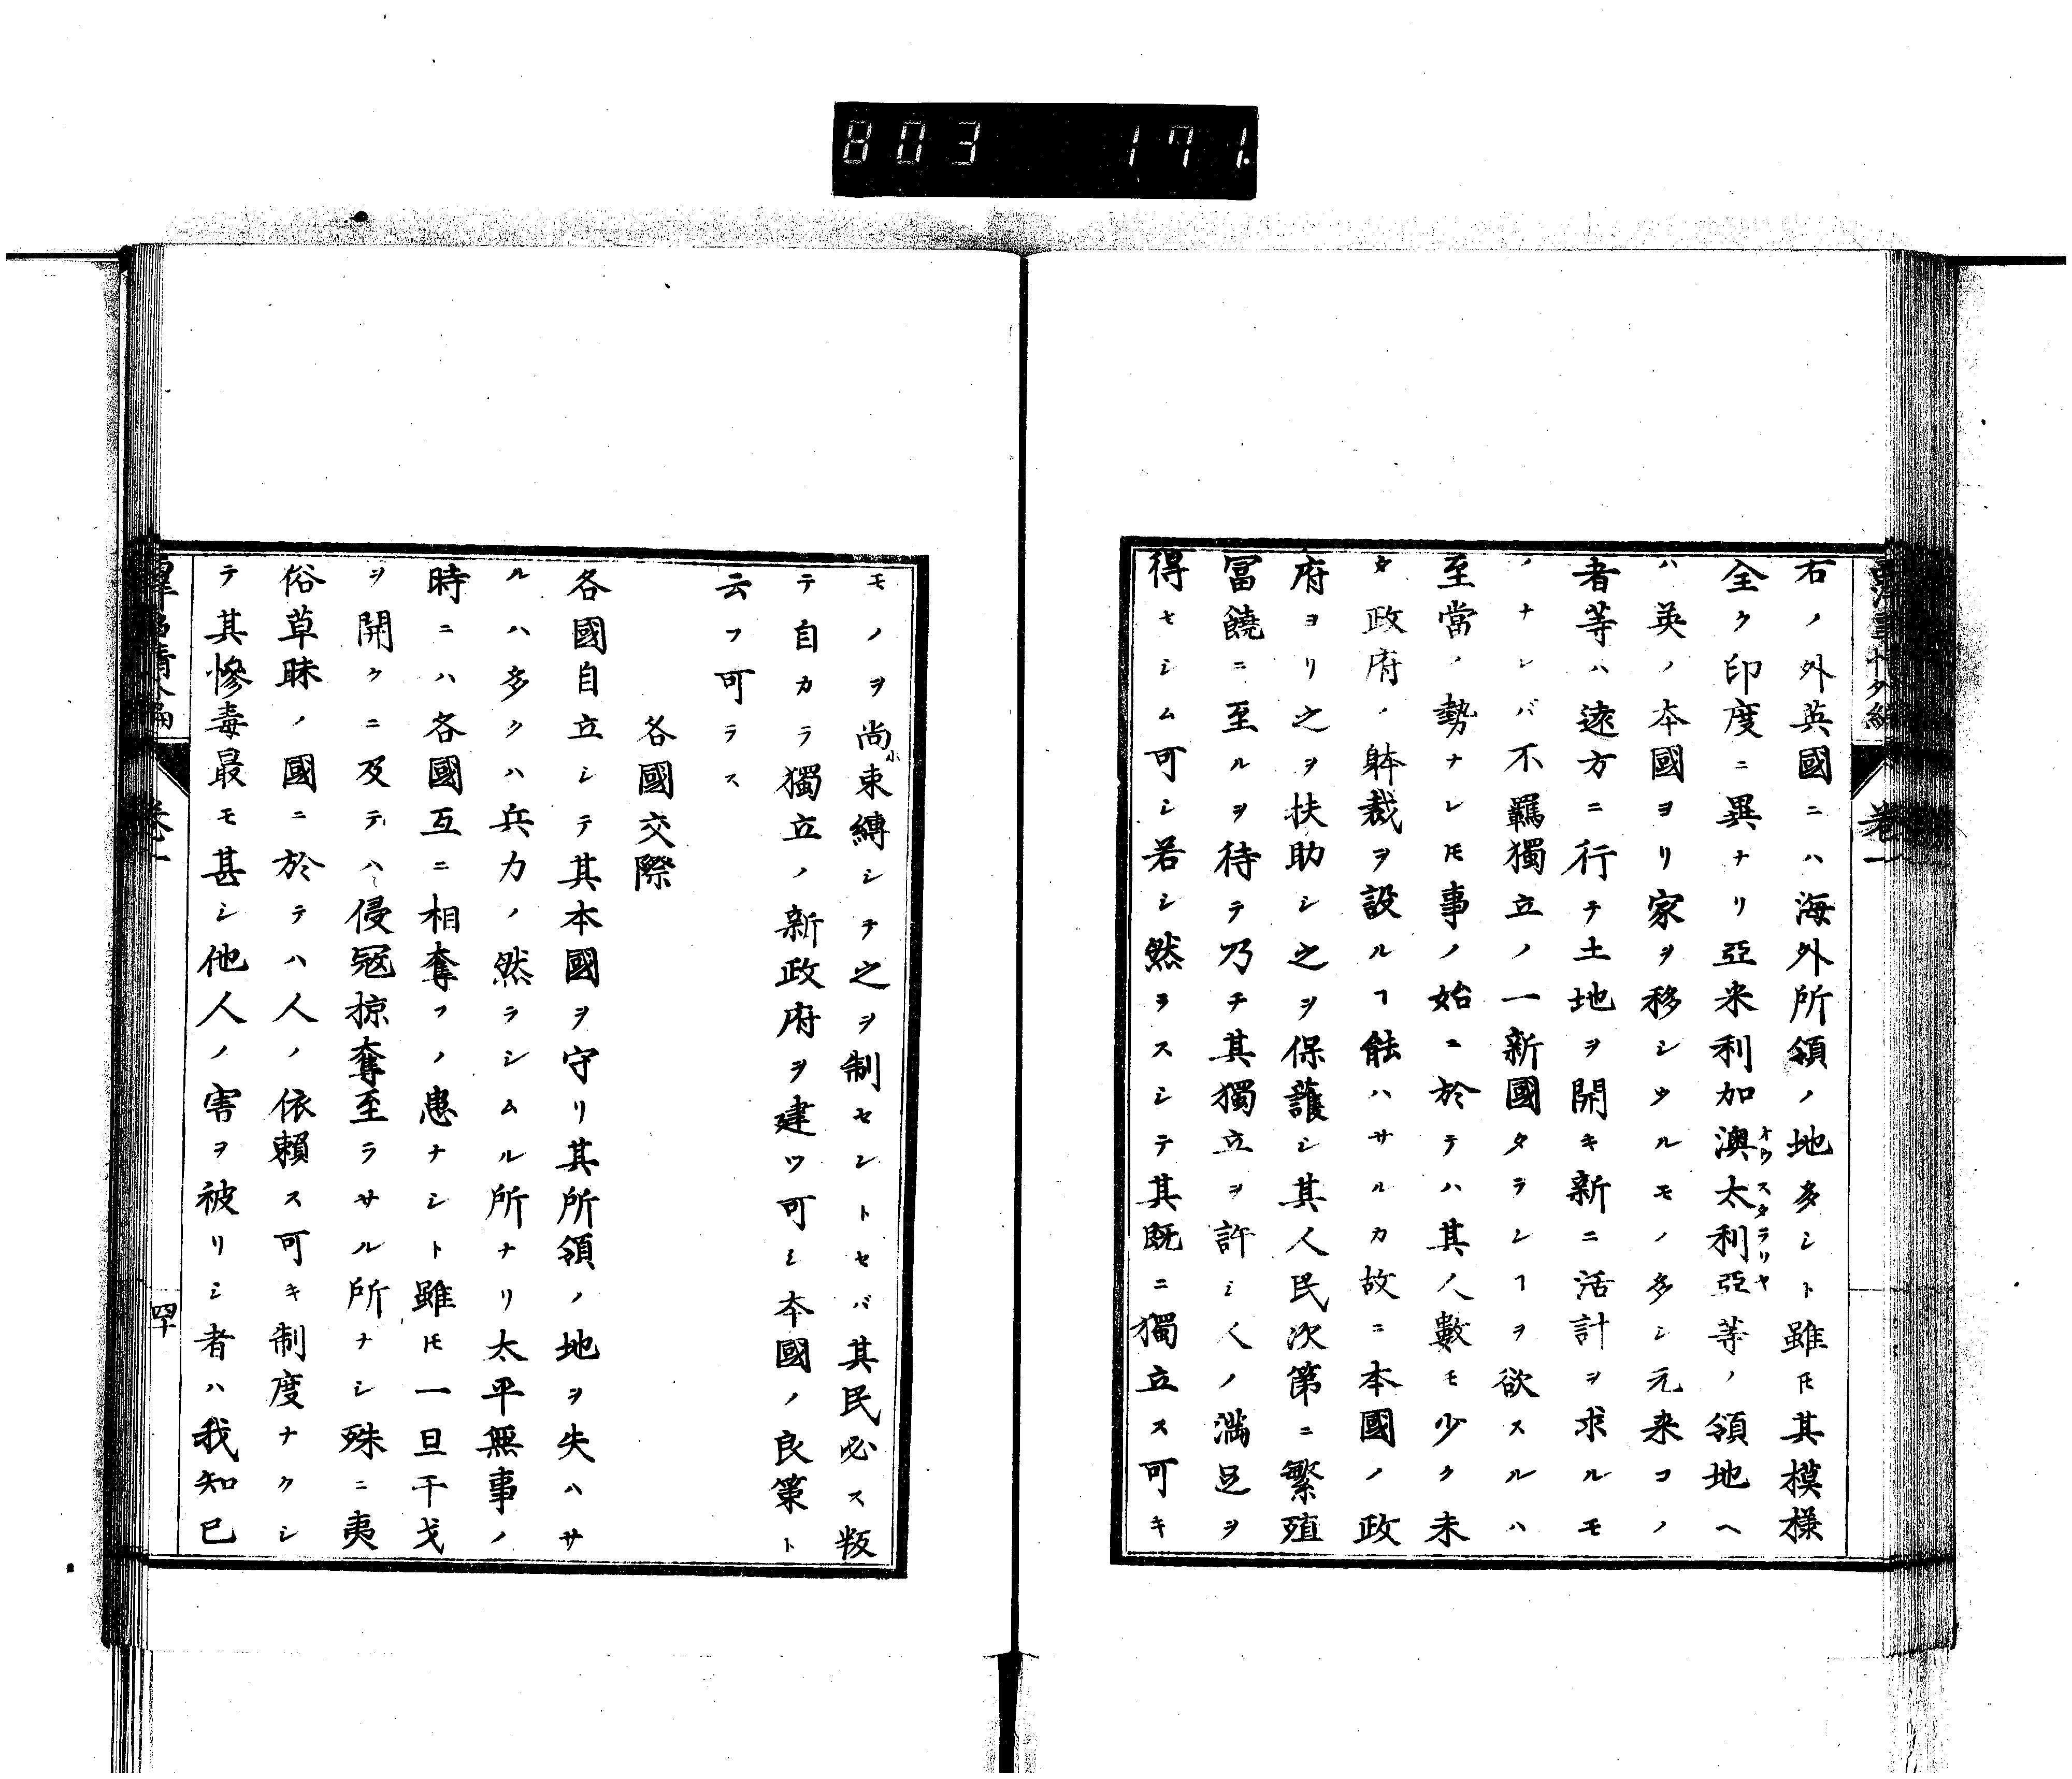 803 171.
右ノ外英國ニハ海外所領ノ地多シト雖𪜈其模様
全ク印度ニ異ナリ亞米利加澳太利亞等ノ領地ヘ
オウスタラリヤ
ハ英ノ本國ヨリ家ヲ移シタルモノ多シ元来コノ
者等ハ遠方ニ行テ土地ヲ開キ新ニ活計ヲ求ルモ
ノナレバ不羈獨立ノ一新國タランヿヲ欲スルハ
至當ノ勢ナレ𪜈事ノ始ニ於テハ其人數モ少ク未
タ政府ノ躰裁ヲ設ルヿ能ハサルカ故ニ本國ノ政
府ヨリ之ヲ扶助シ之ヲ保護シ其人民次第ニ繁殖
冨饒ニ至ルヲ待テ乃チ其獨立ヲ許シ人ノ満足ヲ
得セシム可シ若シ然ラスシテ其既ニ獨立ス可キ
卷一
モノヲ尚ホ束縛シテ之ヲ制セントセバ其民必ス叛
テ自カラ獨立ノ新政府ヲ建ツ可シ本國ノ良策ト
云フ可ラス
各國交際
各國自立シテ其本國ヲ守リ其所領ノ地ヲ失ハサ
ルハ多クハ兵力ノ然ラシムル所ナリ太平無事ノ
時ニハ各國互ニ相奪フノ患ナシト雖𪜈一旦干戈
ヲ開クニ及テハ侵冦掠奪至ラサル所ナシ殊ニ夷
俗草昧ノ國ニ於テハ人ノ依頼ス可キ制度ナクシ
テ其慘毒最モ甚シ他人ノ害ヲ被リシ者ハ我知己
卷一